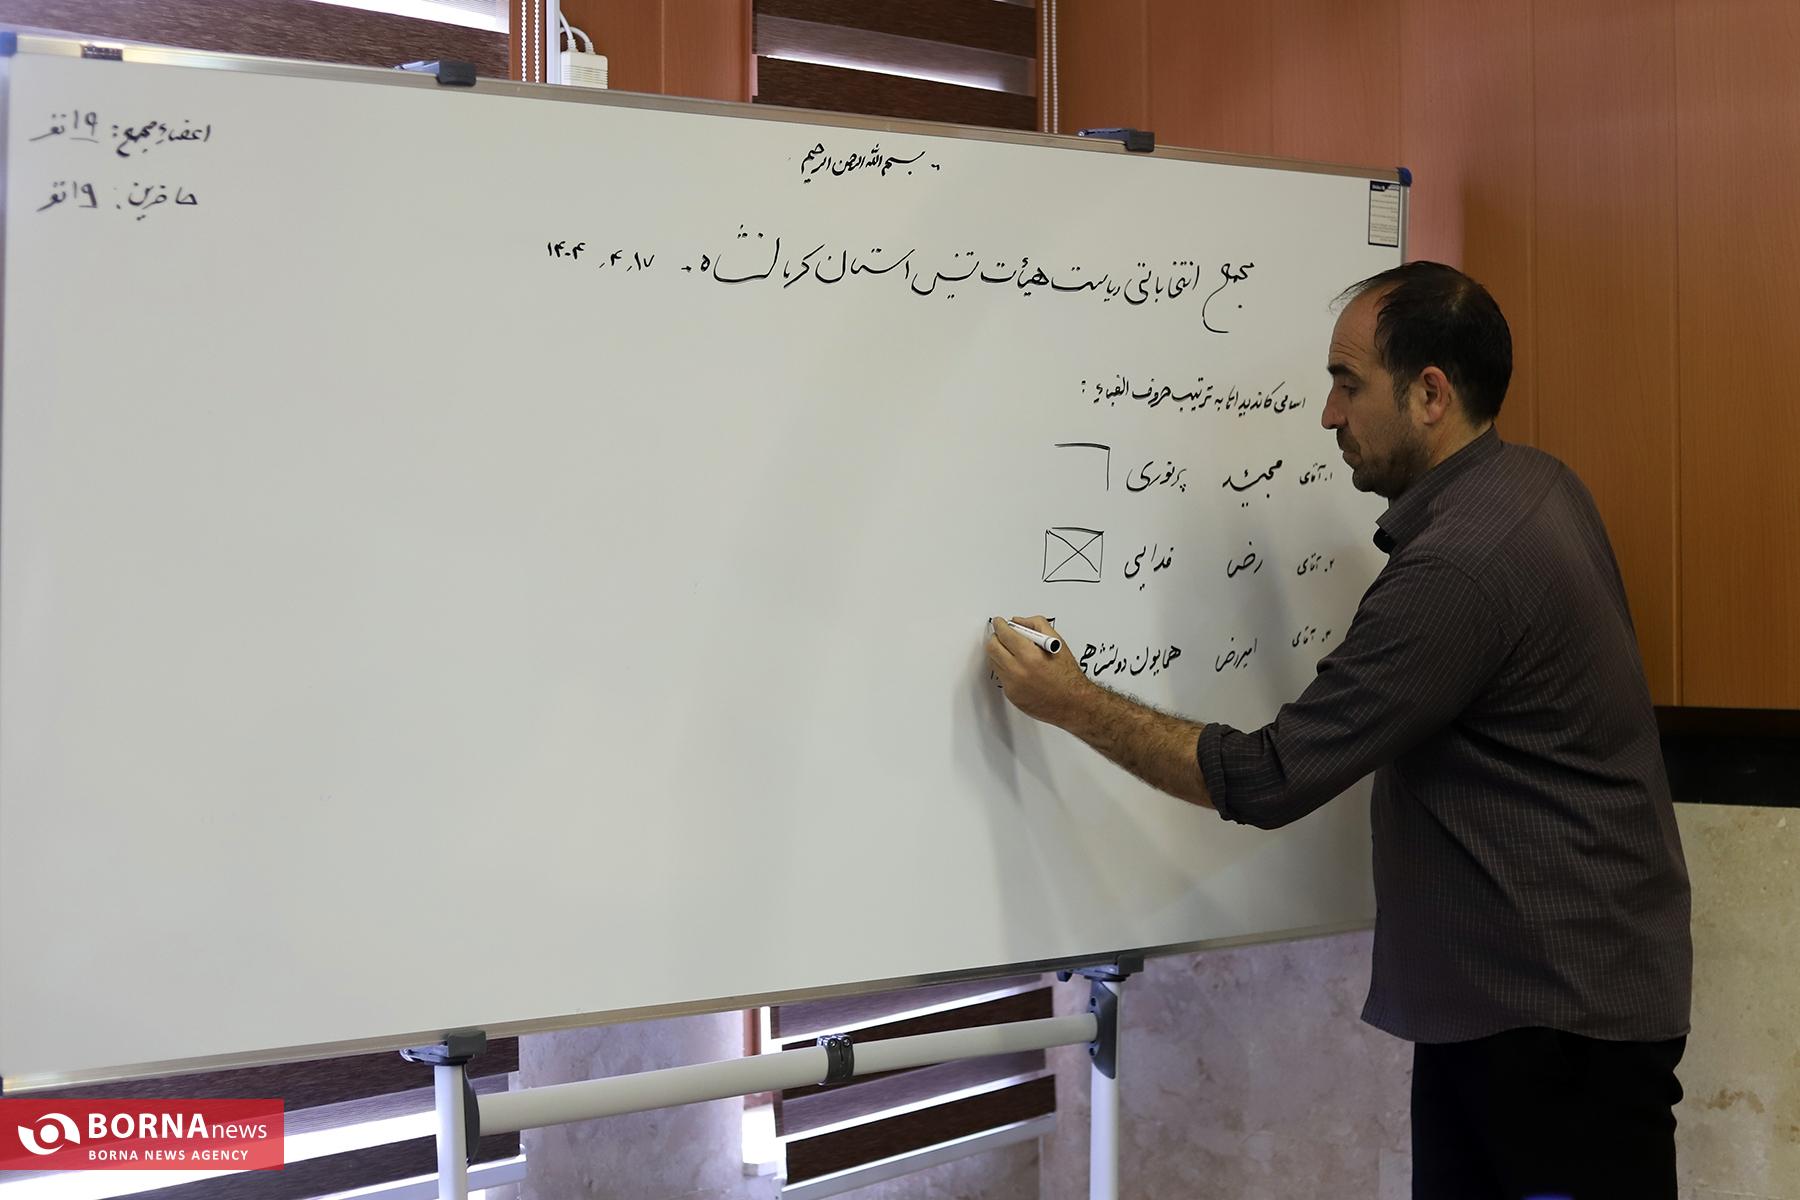 بسم الله الرحمن الرحیم
اعضاء مجمع: ۱۹ نفر
حاضرین: ۱۹ نفر
مجمع انتخاباتی ریاست هیأت تنیس استان کرمانشاه - ۱۴۰۴٫۴٫۱۷
اسامی کاندیداها به ترتیب حروف الفباء:
۱. آقای جمشید پرنوری
۲. آقای رضا فدایی
۳. آقای امیررضا همایون دولتشاهی
BORNA news
BORNA NEWS AGENCY